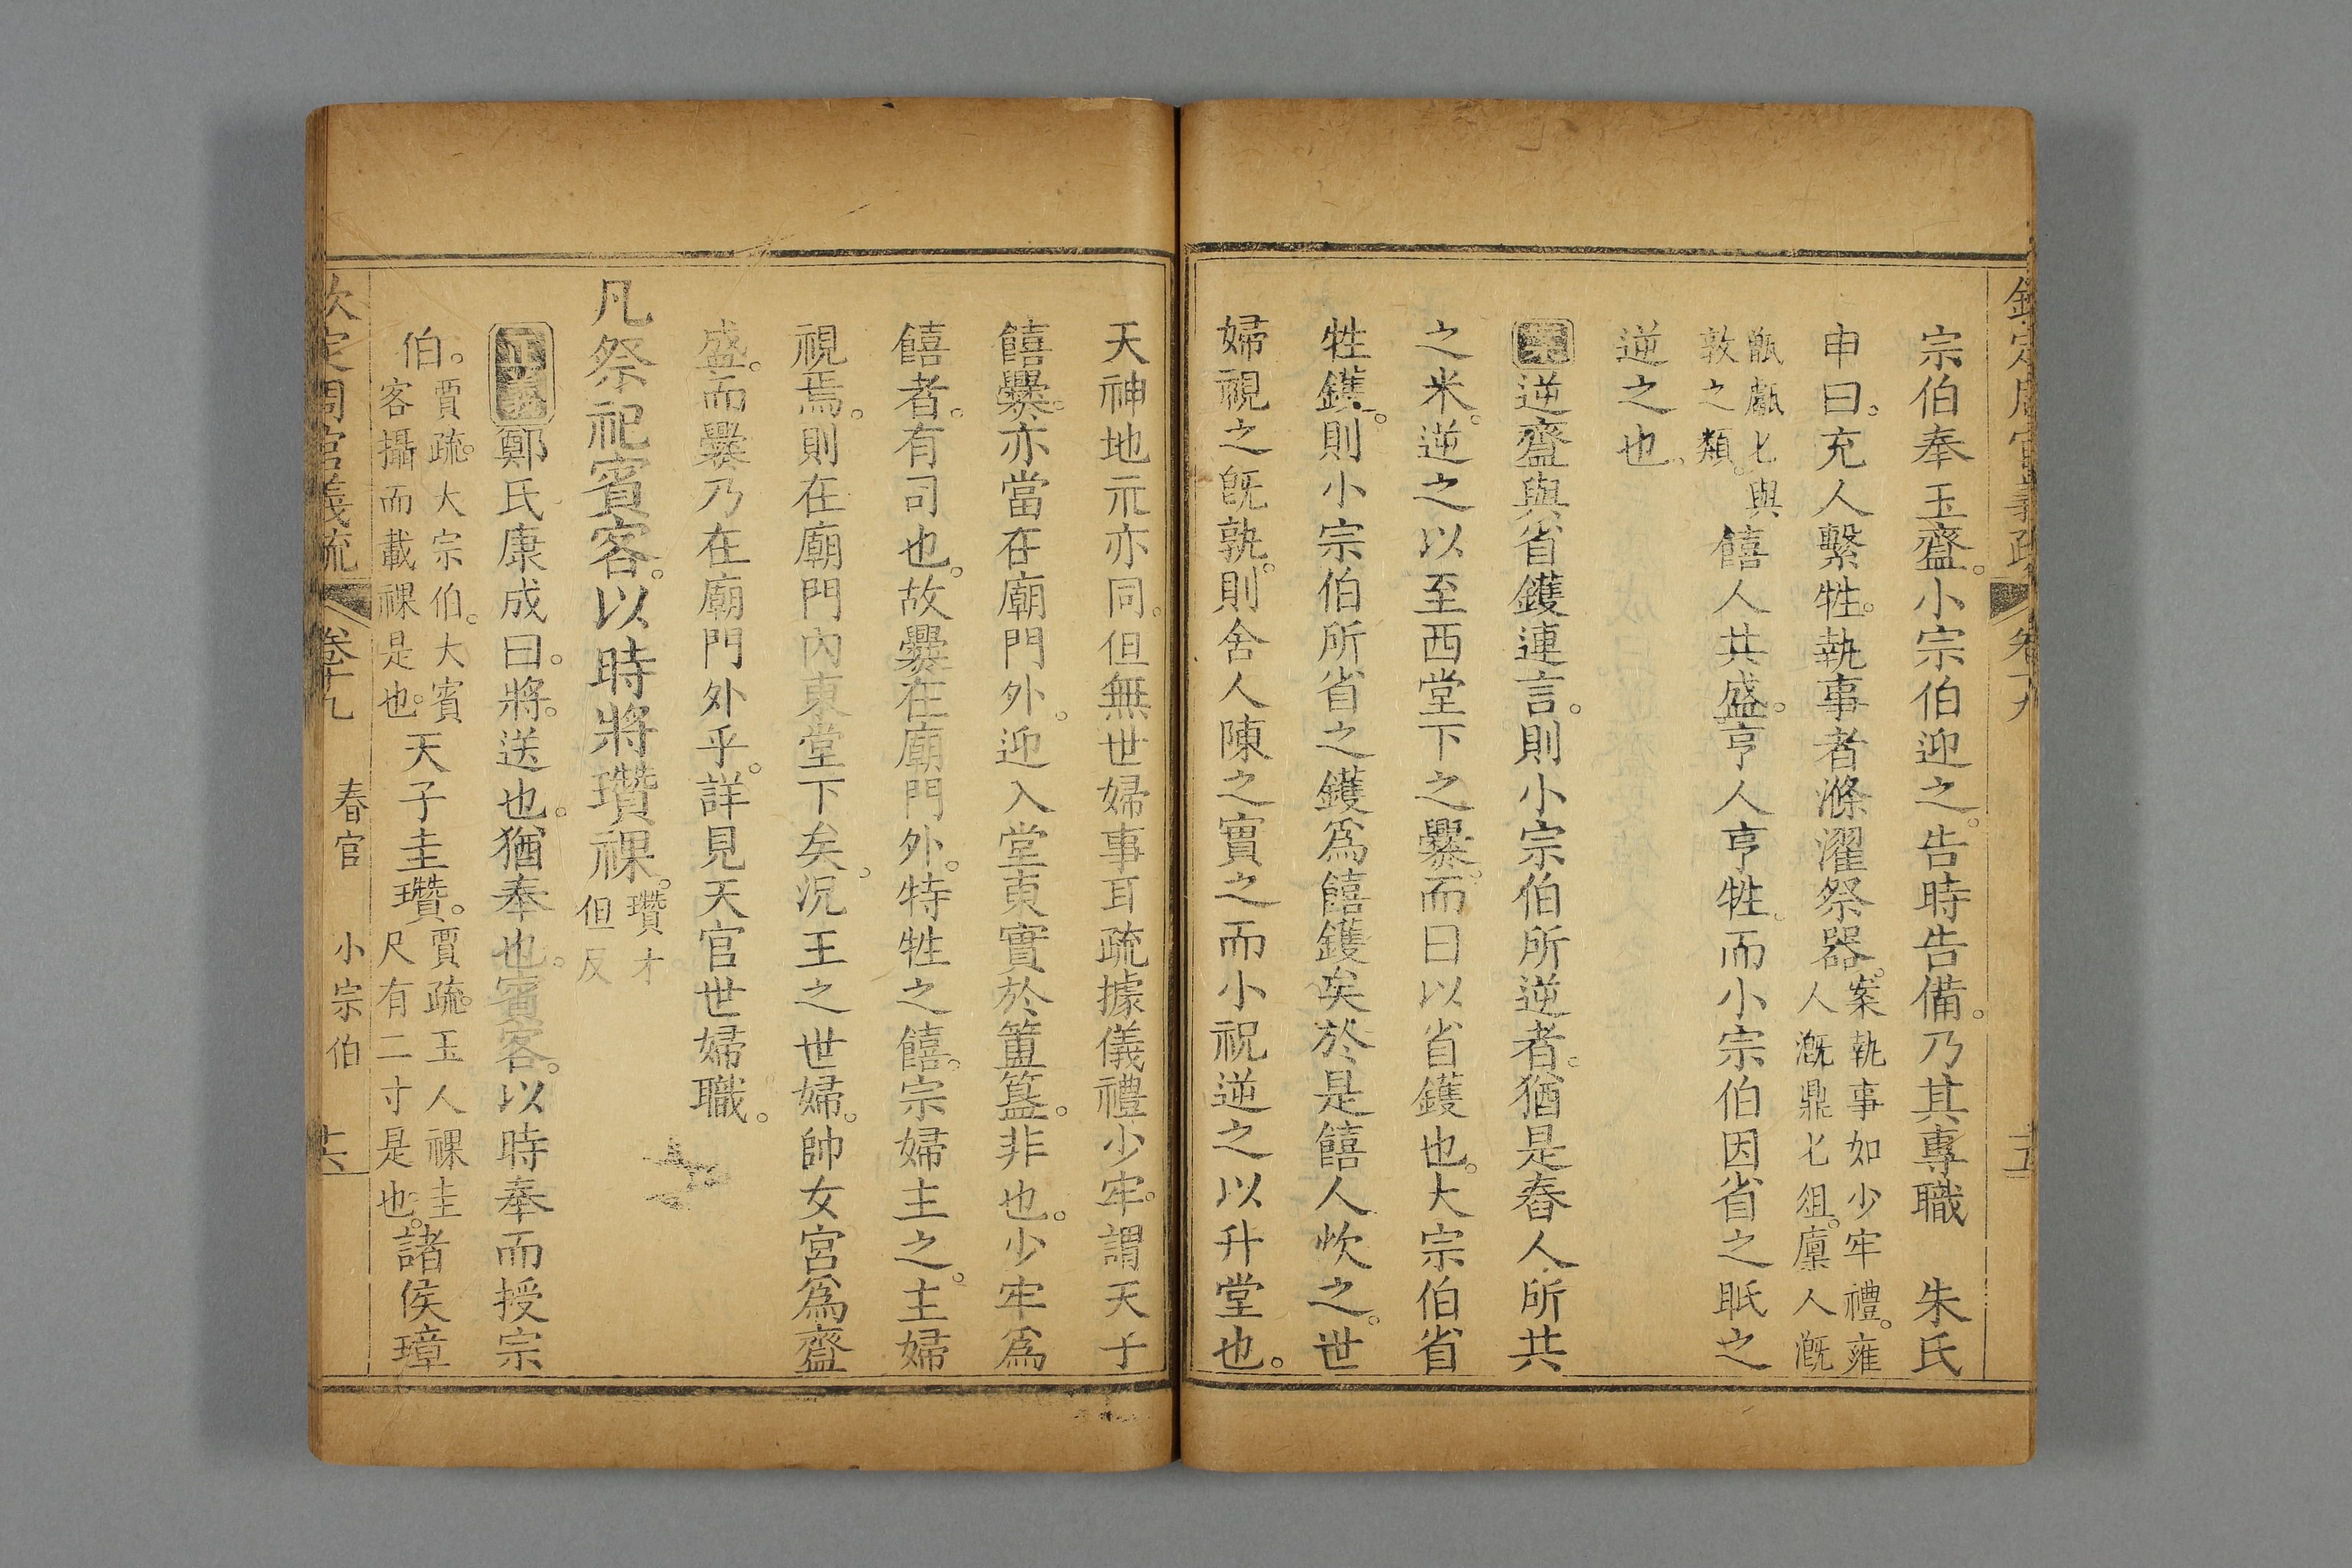 欽定周官義疏 卷十九 十五
宗伯奉玉齍。小宗伯迎之。告時告備。乃其專職 朱氏
申曰。充人繫牲。執事者滌濯祭器。案執事如少牢禮。雍人漑鼎匕俎。廩人漑
甑甗匕與敦之類。饎人共盛。亨人亨牲。而小宗伯因省之眡之
逆之也。
案逆齍與省鑊連言。則小宗伯所逆者。猶是舂人所共
之米。逆之以至西堂下之爨。而曰以省鑊也。大宗伯省
牲鑊。則小宗伯所省之鑊爲饎鑊矣於是饎人炊之。世
婦視之旣孰。則舍人陳之實之而小祝逆之以升堂也。
天神地示亦同。但無世婦事耳疏據儀禮少牢。謂天子
饎爨。亦當在廟門外。迎入堂東實於簠簋。非也。少牢爲
饎者。有司也。故爨在廟門外。特牲之饎。宗婦主之。主婦
視焉。則在廟門內東堂下矣。況王之世婦。帥女宮爲齍
盛。而爨乃在廟門外乎。詳見天官世婦職。
凡祭祀賓客。以時將瓚祼。瓚才但反
正義鄭氏康成曰。將。送也。猶奉也。賓客。以時奉而授宗
伯。賈疏。大宗伯。大賓客攝而載祼是也。天子圭瓚。賈疏。玉人祼圭尺有二寸是也。諸侯璋
欽定周官義疏 卷十九 春官 小宗伯 十六